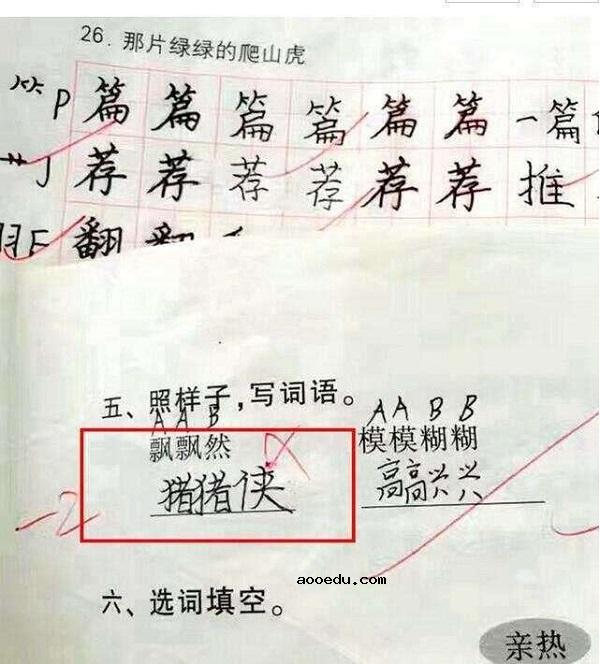 26. 那片绿绿的爬山虎
⺮ P 篇 篇 篇 篇 篇 篇 一篇
艹 J 荐 荐 荐 荐 荐 荐 推
羽 F 翻 翻
五、照样子,写词语。
A A B
A A B B
飘飘然
模模糊糊
猪猪侠
高高兴兴
-2
aooedu.com
六、选词填空。
亲热